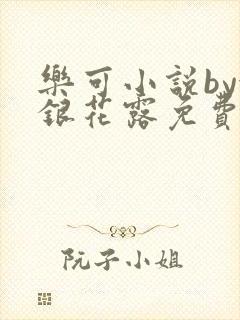 樂可小說by
銀花露免費
阮子小姐